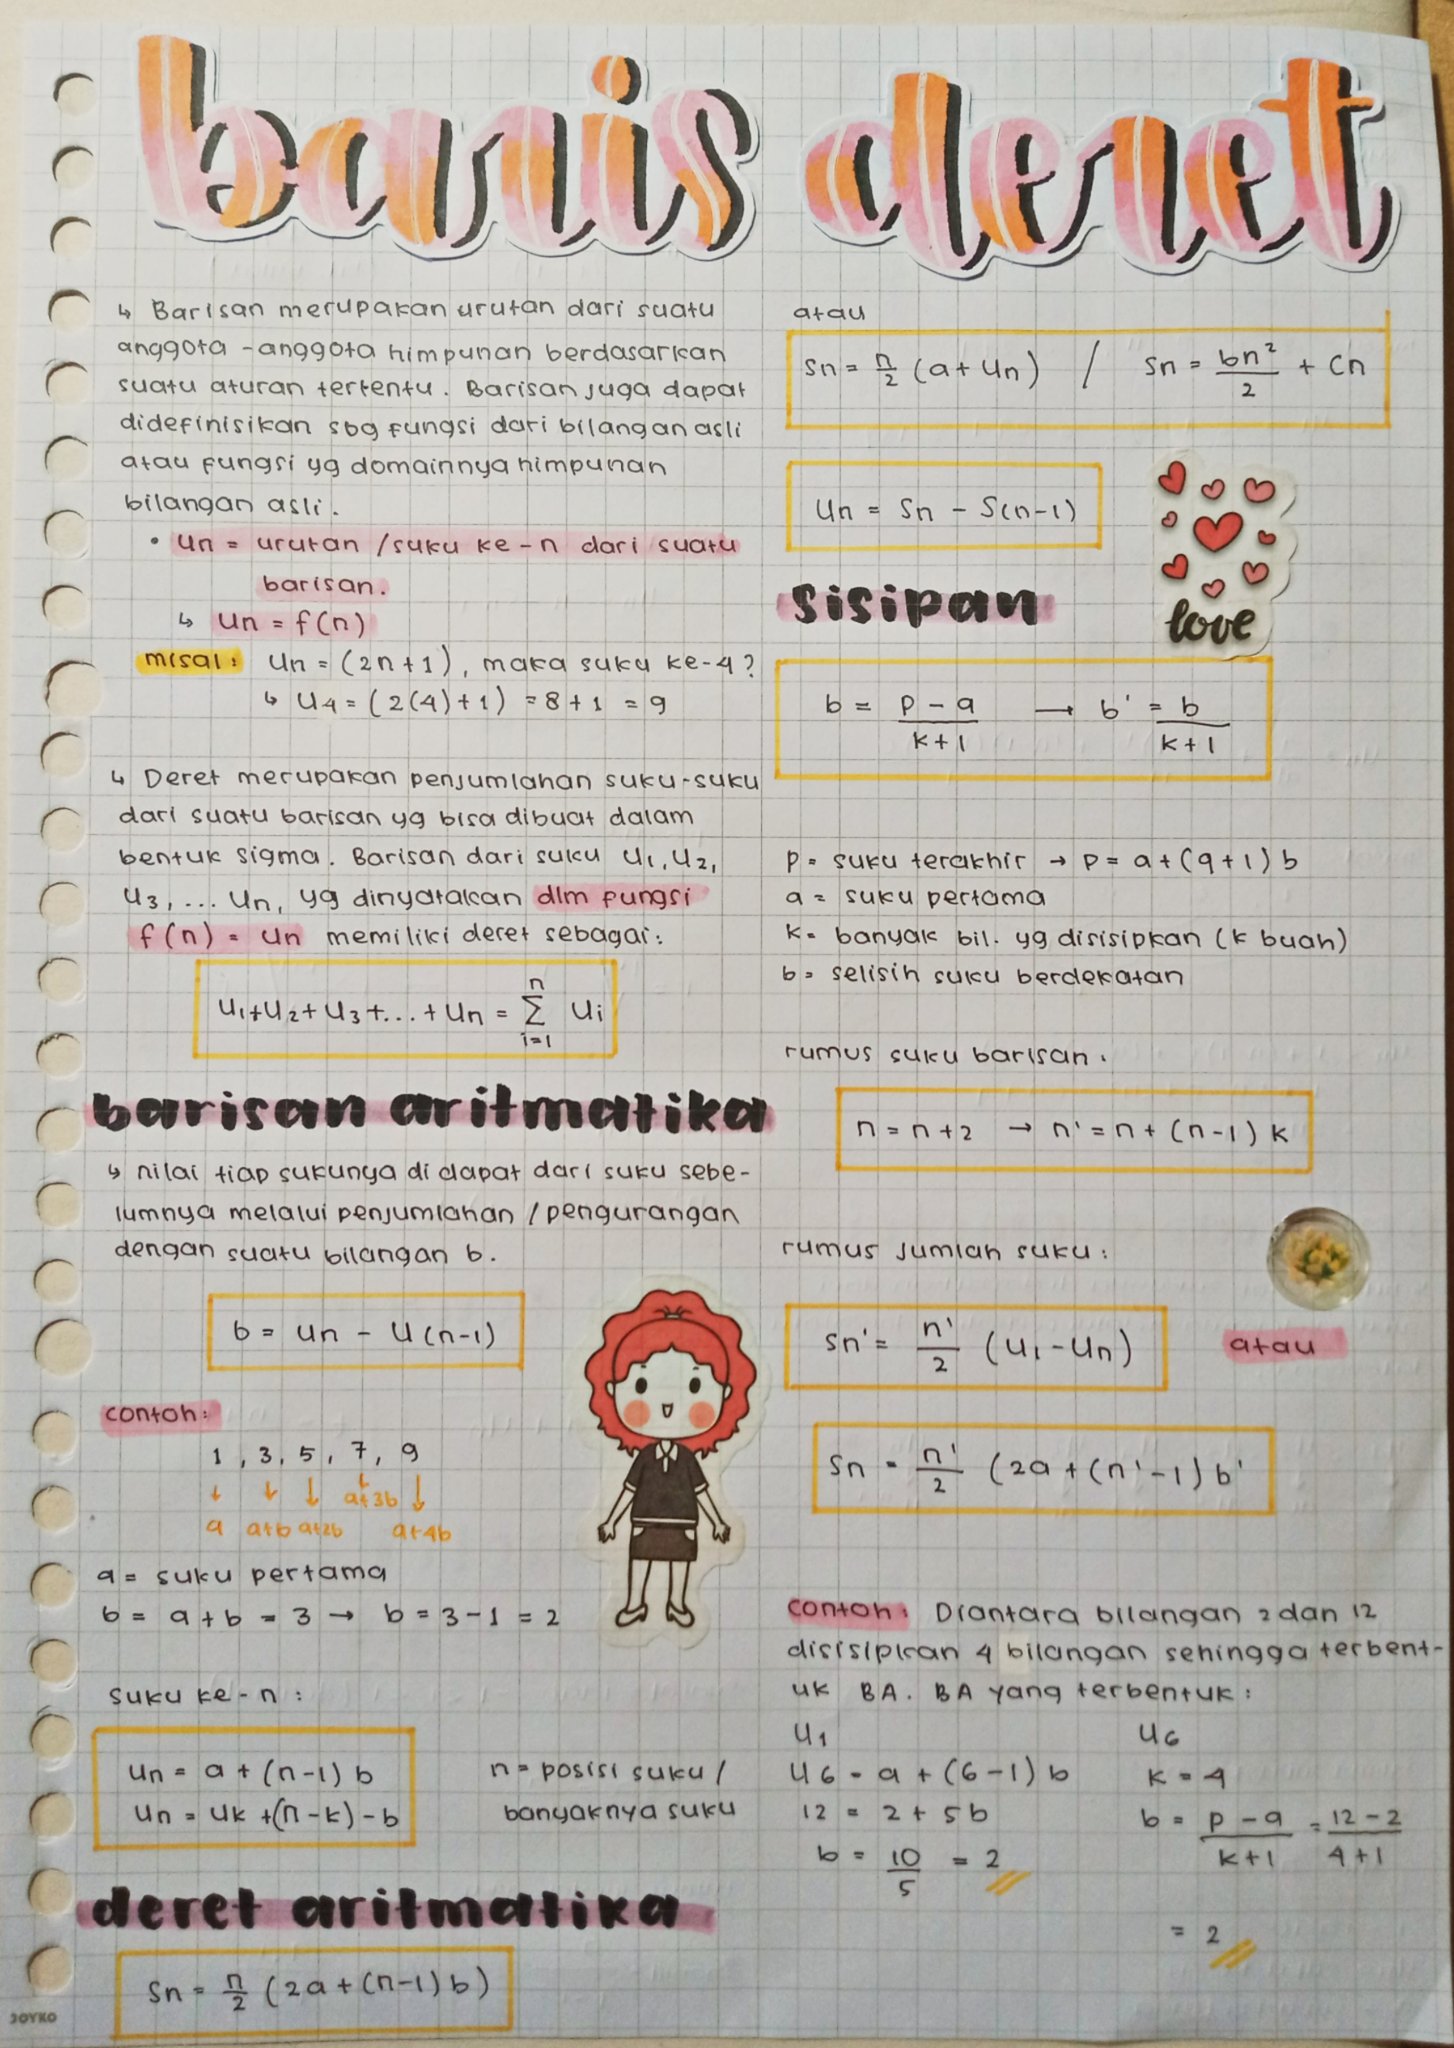 baris deret
↳ Barisan merupakan urutan dari suatu
anggota-anggota himpunan berdasarkan
suatu aturan tertentu. Barisan juga dapat
didefinisikan sbg fungsi dari bilangan asli
atau fungsi yg domainnya himpunan
bilangan asli.
• Un = urutan /suku ke-n dari suatu
barisan.
↳ Un = f(n)
misal: Un = (2n+1), maka suku ke-4?
↳ U4 = (2(4)+1) = 8+1 = 9
↳ Deret merupakan penjumlahan suku-suku
dari suatu barisan yg bisa dibuat dalam
bentuk sigma. Barisan dari suku U1, U2,
U3, ... Un, yg dinyatakan dlm fungsi
f(n) = Un memiliki deret sebagai:
U1+U2+U3+...+Un = n∑i=1 Ui
barisan aritmatika
↳ nilai tiap sukunya di dapat dari suku sebe-
lumnya melalui penjumlahan / pengurangan
dengan suatu bilangan b.
b = Un - U(n-1)
contoh:
1, 3, 5, 7, 9
↓ ↓ ↓ ↓ ↓
a a+b a+2b a+3b a+4b
a = suku pertama
b = a+b = 3 → b = 3-1 = 2
suku ke-n:
Un = a + (n-1) b
Un = Uk +(n-k)-b
n = posisi suku /
banyaknya suku
deret aritmatika
Sn = n/2 (2a+(n-1)b)
atau
Sn = n/2 (a+Un) / Sn = bn²/2 + Cn
Un = Sn - S(n-1)
love
sisipan
b = p-a/k+1 → b' = b/k+1
p = suku terakhir → p = a+(q+1)b
a = suku pertama
k = banyak bil. yg disisipkan (k buah)
b = selisih suku berdekatan
rumus suku barisan.
n = n+2 → n' = n + (n-1) k
rumus jumlah suku:
Sn' = n'/2 (U1-Un)
atau
Sn = n'/2 (2a+(n'-1)b'
contoh: Diantara bilangan 2 dan 12
disisipkan 4 bilangan sehingga terbent-
uk BA. BA yang terbentuk:
U1
U6 = a + (6-1) b
12 = 2 + 5b
b = 10/5 = 2
U6
k = 4
b = p-a/k+1 = 12-2/4+1
= 2
JOYKO